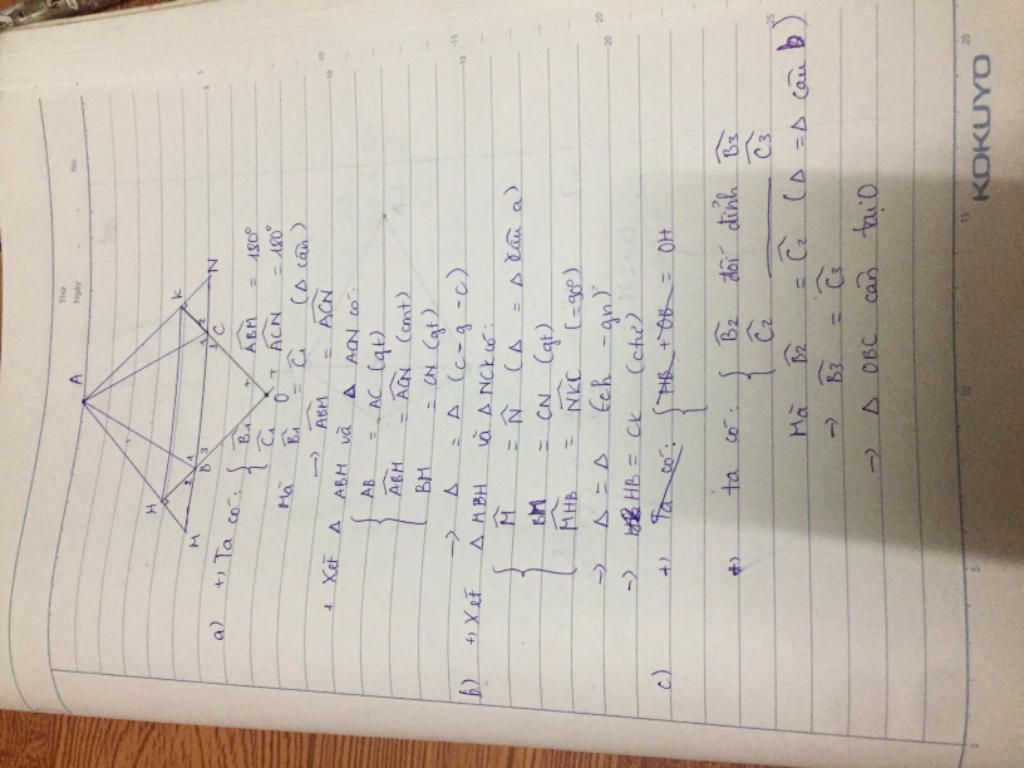 Thứ
Ngày
No.
A
H
K
M
B
C
N
O
1
2
3
1
2
3
a) +) Ta có: { B̂1 + ABM̂ = 180°
Ĉ1 + ACN̂ = 180°
Mà B̂1 = Ĉ1 (Δ cân)
→ ABM̂ = ACN̂
+ Xét Δ ABM và Δ ACN có:
{ AB = AC (gt)
ABM̂ = ACN̂ (cmt)
BM = CN (gt)
→ Δ = Δ (c-g-c)
b) +) Xét Δ MBH và Δ NCK có:
{ M̂ = N̂ (Δ = Δ câu a)
BM = CN (gt)
MHB̂ = NKĈ (=90°)
→ Δ = Δ (ch-gn)
→ HB = CK (ctư)
c) +) Ta có: { HB + OB = OH
+) ta có: { B̂2 đối đỉnh B̂3
Ĉ2 Ĉ3
Mà B̂2 = Ĉ2 (Δ = Δ câu b)
→ B̂3 = Ĉ3
→ Δ OBC cân tại O
5
10
15
20
25
0
5
10
15
20
KOKUYO